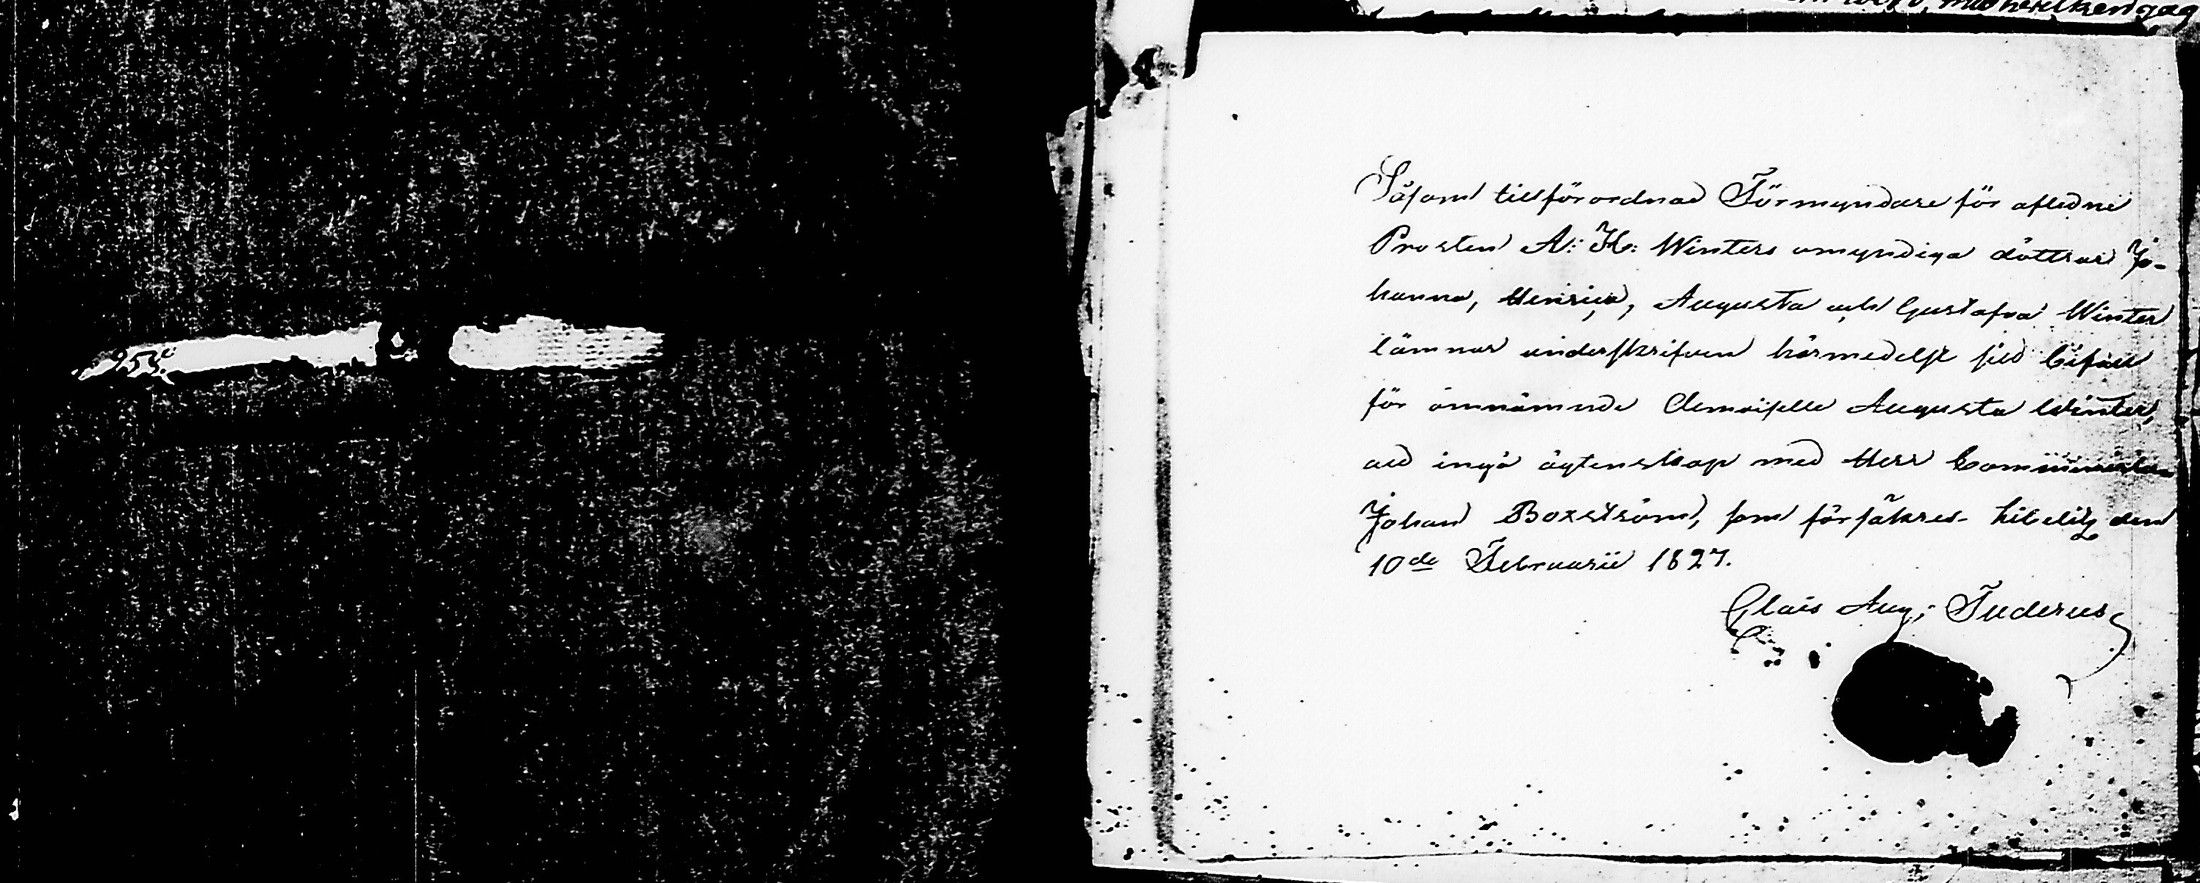 Såsom tillförordnad Förmyndare för aflidne
Prosten A: H: Winters omyndiga döttrar Jo-
hanna, Henrica, Augusta och Gustafva Winter
lämnar underskrifven härmedelst sitt bifall
för ömnämnde demoiselle Augusta Winter,
att ingå ägtenskap med Herr Comministern
Johan Boxström, som försäkras. Kibelitz den
10de Februarii 1827.
Clais Aug: Tuderus